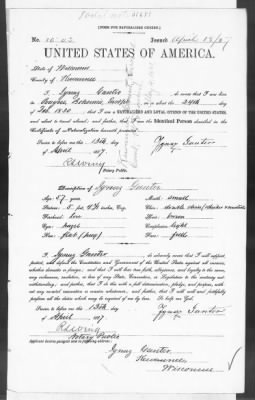 [FORM FOR NATURALIZED CITIZEN.]
No. 1602 Issued April 18/87
UNITED STATES OF AMERICA.
State of Wisconsin
County of Kewaunee
I, Ignaz Ganter, do swear that I was born in
Bohemia, Europe on or about the 24th day
of Feb. 1830, that I am a NATURALIZED AND LOYAL CITIZEN OF THE UNITED STATES,
and about to travel abroad; and further, that I am the Identical Person described in the
Certificate of Naturalization herewith presented.
Sworn to before me this 13th day
of April 1887. Ignaz Ganter
Notary Public.
Description of Ignaz Ganter
Age: 57 years. Mouth: small
Stature: 5 feet, inches, Eng. Chin:
Forehead: low Hair: brown
Eyes: hazel Complexion: light
Nose: flat (pug) Face: full
I, Ignaz Ganter, do solemnly swear that I will support,
protect, and defend the Constitution and Government of the United States against all enemies,
whether domestic or foreign; and that I will bear true faith, allegiance, and loyalty to the same,
any ordinance, resolution, or law of any State, Convention, or Legislature to the contrary not-
withstanding; and further, that I do this with a full determination, pledge, and purpose, with-
out any mental reservation or evasion whatsoever; and further, that I will well and faithfully
perform all the duties which may be required of me by law. So help me God.
Sworn to before me this 13th day
of April 1887 Ignaz Ganter
Notary Public
Applicant desires passport sent to following address:
Ignaz Ganter
Kewaunee
Wisconsin